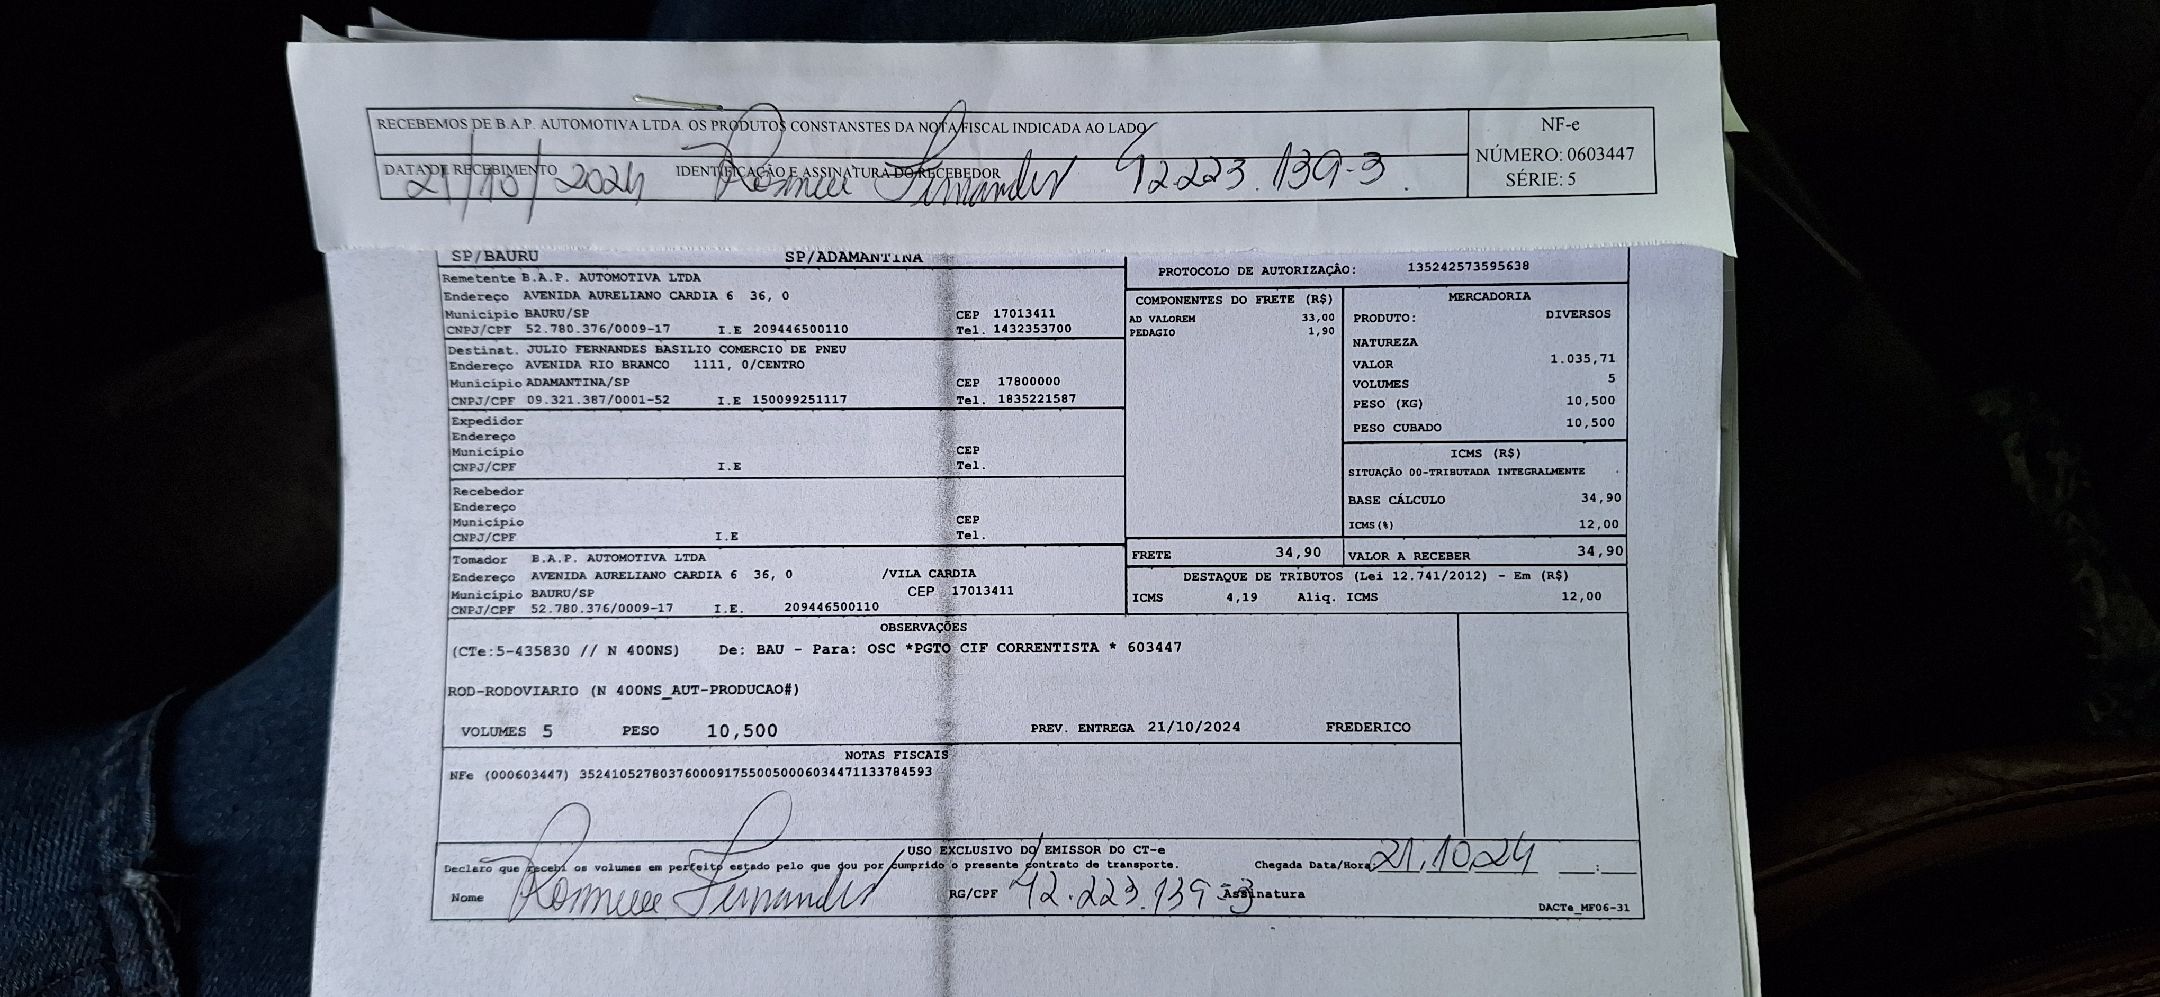 RECEBEMOS DE B.A.P. AUTOMOTIVA LTDA. OS PRODUTOS CONSTANSTES DA NOTA FISCAL INDICADA AO LADO
NF-e
NÚMERO: 0603447
SÉRIE: 5
DATA DE RECEBIMENTO IDENTIFICAÇÃO E ASSINATURA DO RECEBEDOR
21/10/2024 Fernandes 42.223.139-3
SP/BAURU SP/ADAMANTINA
PROTOCOLO DE AUTORIZAÇÃO: 135242573595638
Remetente B.A.P. AUTOMOTIVA LTDA
Endereço AVENIDA AURELIANO CARDIA 6 36, 0
Município BAURU/SP CEP 17013411
CNPJ/CPF 52.780.376/0009-17 I.E 209446500110 Tel. 1432353700
Destinat. JULIO FERNANDES BASILIO COMERCIO DE PNEU
Endereço AVENIDA RIO BRANCO 1111, 0/CENTRO
Município ADAMANTINA/SP CEP 17800000
CNPJ/CPF 09.321.387/0001-52 I.E 150099251117 Tel. 1835221587
Expedidor
Endereço
Município CEP
CNPJ/CPF I.E Tel.
Recebedor
Endereço
Município CEP
CNPJ/CPF I.E Tel.
Tomador B.A.P. AUTOMOTIVA LTDA
Endereço AVENIDA AURELIANO CARDIA 6 36, 0 /VILA CARDIA
Município BAURU/SP CEP 17013411
CNPJ/CPF 52.780.376/0009-17 I.E. 209446500110
COMPONENTES DO FRETE (R$)
AD VALOREM 33,00
PEDAGIO 1,90
MERCADORIA
PRODUTO: DIVERSOS
NATUREZA
VALOR 1.035,71
VOLUMES 5
PESO (KG) 10,500
PESO CUBADO 10,500
ICMS (R$)
SITUAÇÃO 00-TRIBUTADA INTEGRALMENTE
BASE CÁLCULO 34,90
ICMS(%) 12,00
FRETE 34,90 VALOR A RECEBER 34,90
DESTAQUE DE TRIBUTOS (Lei 12.741/2012) - Em (R$)
ICMS 4,19 Aliq. ICMS 12,00
OBSERVAÇÕES
(CTe:5-435830 // N 400NS) De: BAU - Para: OSC *PGTO CIF CORRENTISTA * 603447
ROD-RODOVIARIO (N 400NS_AUT-PRODUCAO#)
VOLUMES 5 PESO 10,500 PREV. ENTREGA 21/10/2024 FREDERICO
NOTAS FISCAIS
NFe (000603447) 35241052780376000917550050006034471133784593
USO EXCLUSIVO DO EMISSOR DO CT-e
Declaro que recebi os volumes em perfeito estado pelo que dou por cumprido o presente contrato de transporte. Chegada Data/Hora: 21.10.24 __:__
Nome Fernandes RG/CPF 42.223.139-3 Assinatura
DACTe_MF06-31